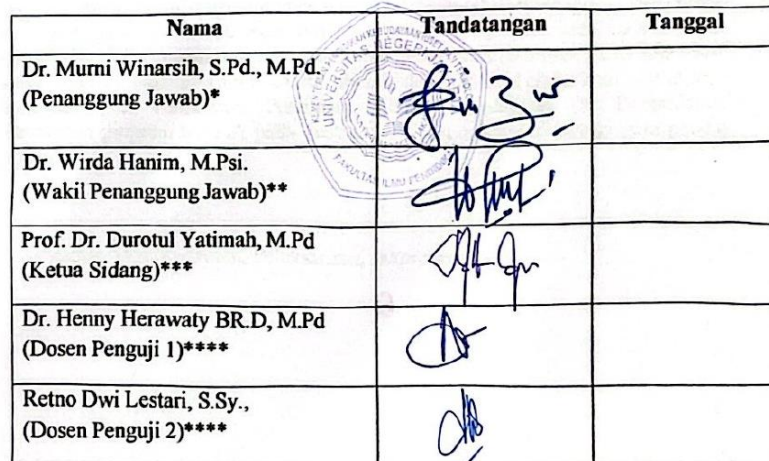 Nama Tandatangan Tanggal
Dr. Murni Winarsih, S.Pd., M.Pd.
(Penanggung Jawab)*
Dr. Wirda Hanim, M.Psi.
(Wakil Penanggung Jawab)**
Prof. Dr. Durotul Yatimah, M.Pd
(Ketua Sidang)***
Dr. Henny Herawaty BR.D, M.Pd
(Dosen Penguji 1)****
Retno Dwi Lestari, S.Sy.,
(Dosen Penguji 2)****
UNIVERSITAS NEGERI JAKARTA
FAKULTAS ILMU PENDIDIKAN